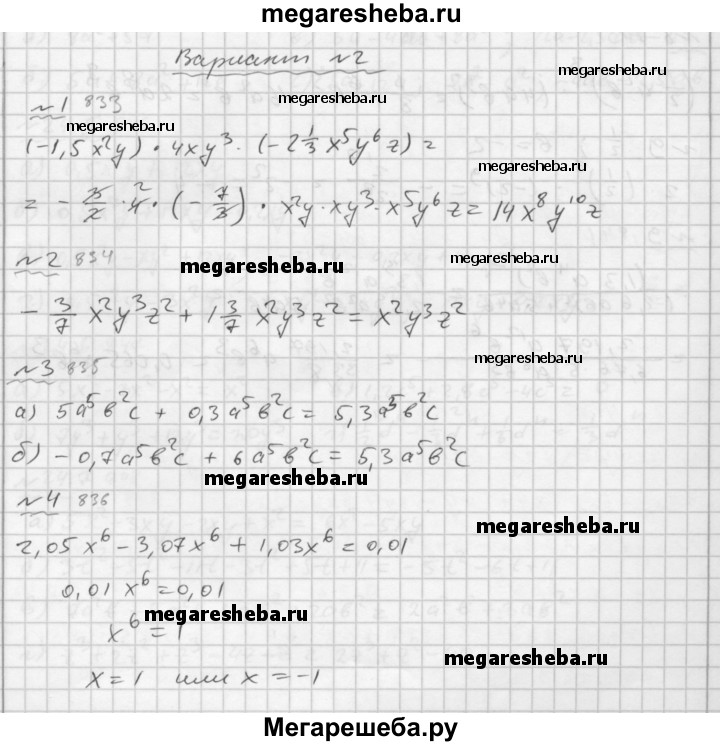 megaresheba.ru
Вариант №2
megaresheba.ru
№1 833
megaresheba.ru
megaresheba.ru
(-1,5x²y) · 4xy³ · (-2 1/3 x⁵y⁶z) =
megaresheba.ru
= - 3/2 · 4² · (- 7/3) · x²y · xy³ · x⁵y⁶z = 14x⁸y¹⁰z
№2 834
megaresheba.ru
megaresheba.ru
- 3/7 x²y³z² + 1 3/7 x²y³z² = x²y³z²
№3 835
megaresheba.ru
а) 5a⁵b²c + 0,3a⁵b²c = 5,3a⁵b²c
б) -0,7a⁵b²c + 6a⁵b²c = 5,3a⁵b²c
megaresheba.ru
№4 836
megaresheba.ru
2,05x⁶ - 3,07x⁶ + 1,03x⁶ = 0,01
0,01x⁶ = 0,01
megaresheba.ru
x⁶ = 1
megaresheba.ru
x = 1 или x = -1
Мегарешеба.ру